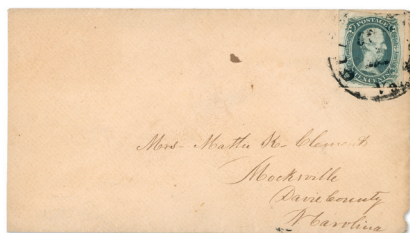 POSTAGE
Mrs. Mattie H. Clement
Mocksville
Davie County
N Carolina